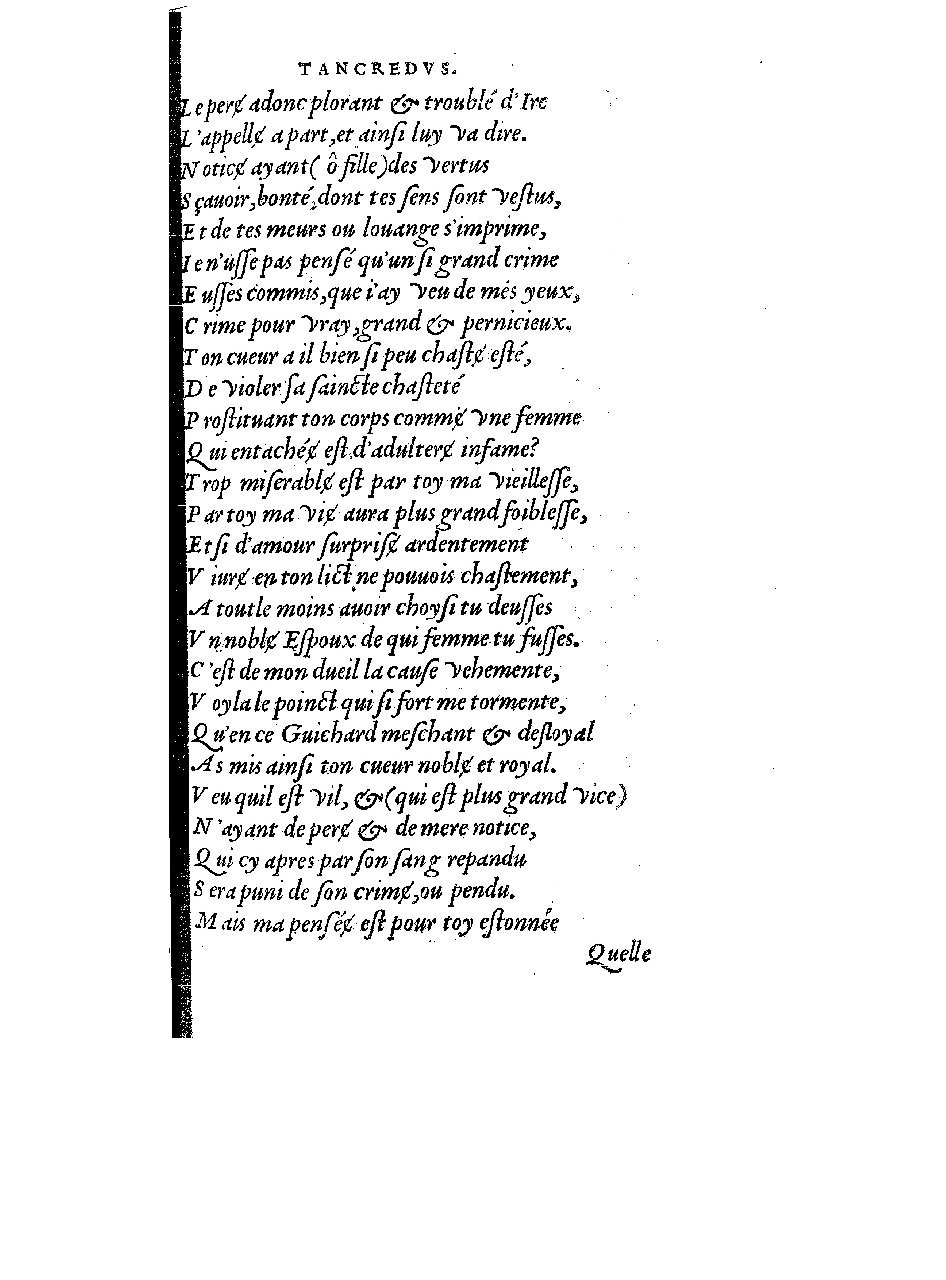 TANCREDVS.
Le perɇ adonc plorant & troublé d'Ire
L'appellɇ a part, et ainſi luy va dire.
Noticɇ ayant( ô fille)des vertus
Sçauoir, bonté, dont tes ſens ſont veſtus,
Et de tes meurs ou louange s'imprime,
Ie n'uſſe pas penſé qu'un ſi grand crime
Euſſes commis, que i'ay veu de més yeux,
Crime pour vray, grand & pernicieux.
Ton cueur a il bien ſi peu chaſtɇ eſté,
De violer ſa ſaincte chaſteté
Proſtituant ton corps commɇ vne femme
Qui entachéɇ eſt d'adulterɇ infame?
Trop miſerablɇ eſt par toy ma vieilleſſe,
Par toy ma viɇ aura plus grand foibleſſe,
Et ſi d'amour ſurpriſɇ ardentement
Viurɇ en ton lict ne pouuois chaſtement,
A tout le moins auoir choyſi tu deuſſes
Vn noblɇ Eſpoux de qui femme tu fuſſes.
C'eſt de mon dueil la cauſe vehemente,
Voyla le poinct qui ſi fort me tormente,
Qu'en ce Guichard meſchant & deſloyal
As mis ainſi ton cueur noblɇ et royal.
Veu quil eſt vil, &(qui eſt plus grand vice)
N'ayant de perɇ & de mere notice,
Qui cy apres par ſon ſang repandu
Sera puni de ſon crimɇ, ou pendu.
Mais ma penſéɇ eſt pour toy eſtonnée
Quelle